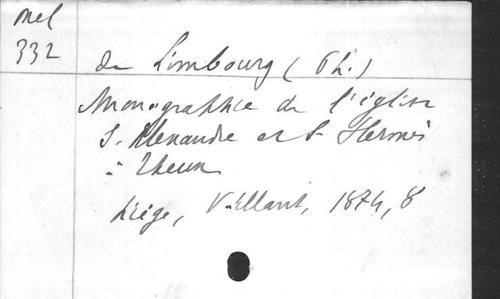 Mel
332
de Limbourg (Ph.)
Monographie de l'église
S. Alexandre et S. Hermès
à Theux
Liège, Vaillant, 1874, 8